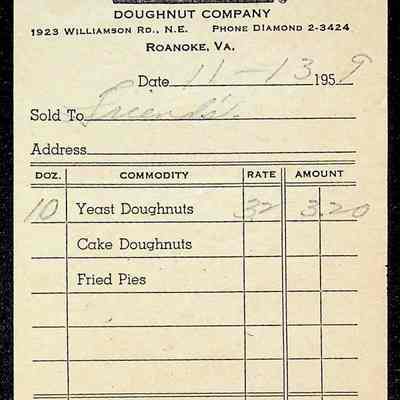 DOUGHNUT COMPANY
1923 WILLIAMSON RD., N.E. PHONE DIAMOND 2-3424
ROANOKE, VA.
Date 11-13 1959
Sold To
Address
DOZ. COMMODITY RATE AMOUNT
10 Yeast Doughnuts 32 3.20
Cake Doughnuts
Fried Pies